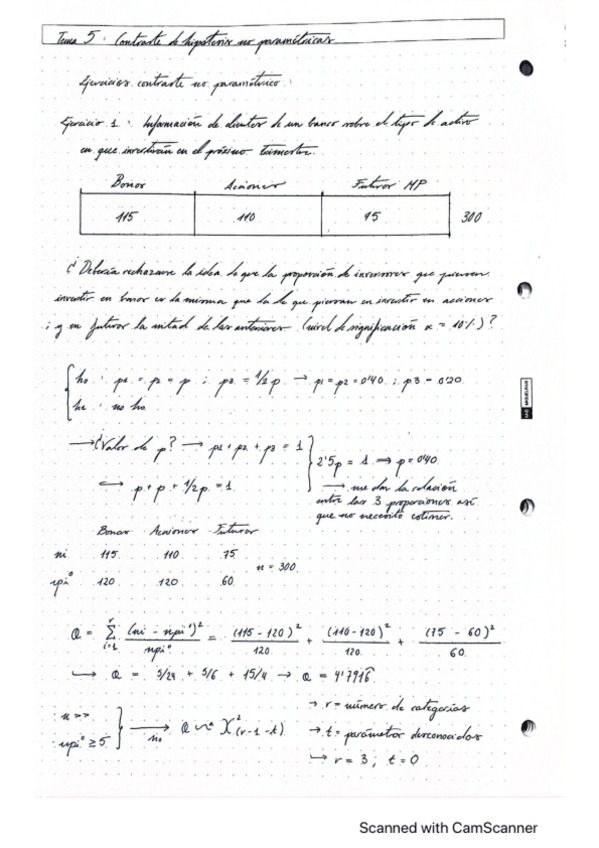 Tema 5: Contraste de hipótesis no paramétricas
Ejercicios contraste no paramétrico:
Ejercicio 1: Información de clientes de un banco sobre el tipo de activo
en que invertirán en el próximo trimestre.
Bonos Acciones Futuros MP
115 110 75 300
¿Debería rechazarse la idea de que la proporción de inversores que piensan
invertir en bonos es la misma que la de que piensan en invertir en acciones
; y en futuros la mitad de las anteriores (nivel de significación α = 10%)?
h₀: p1 = p2 = p ; p3 = 1/2 p → p1 = p2 = 0'40 ; p3 = 0'20
h1: no h₀
→ ¿Valor de p? → p1 + p2 + p3 = 1
2'5p = 1 ⇒ p = 0'40
↪ p + p + 1/2 p = 1
→ me dan la relación
entre las 3 proporciones así
que no necesito estimar.
Bonos Acciones Futuros
ni 115 110 75
n = 300
npi° 120 120 60
Q = Σ i=1 r (ni - npi°)² / npi° = (115 - 120)² / 120 + (110 - 120)² / 120 + (75 - 60)² / 60
↪ Q = 5/24 + 5/6 + 15/4 → Q = 4'7916
n >> → r = número de categorías
npi° ≥ 5 → h₀ Q ~ᵃ χ² (r-1-t) → t = parámetros desconocidos
↪ r = 3 ; t = 0
MIQUELRIUS
Scanned with CamScanner